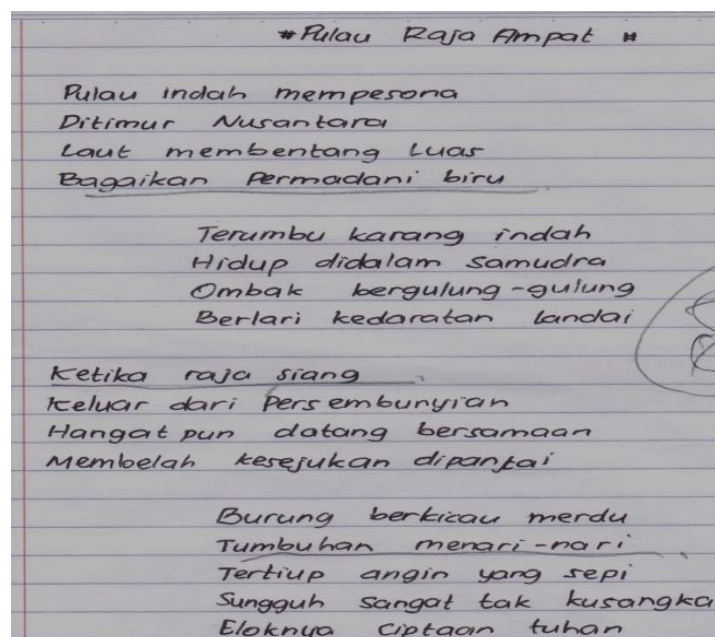 #Pulau Raja Ampat #
Pulau indah mempesona
Ditimur Nusantara
Laut membentang Luas
Bagaikan Permadani biru
Terumbu karang indah
Hidup didalam samudra
Ombak bergulung-gulung
Berlari kedaratan Landai
Ketika raja siang
Keluar dari Persembunyian
Hangat pun datang bersamaan
Membelah kesejukan dipantai
Burung berkicau merdu
Tumbuhan menari-nari
Tertiup angin yang sepi
Sungguh sangat tak kusangka
Eloknya Ciptaan tuhan